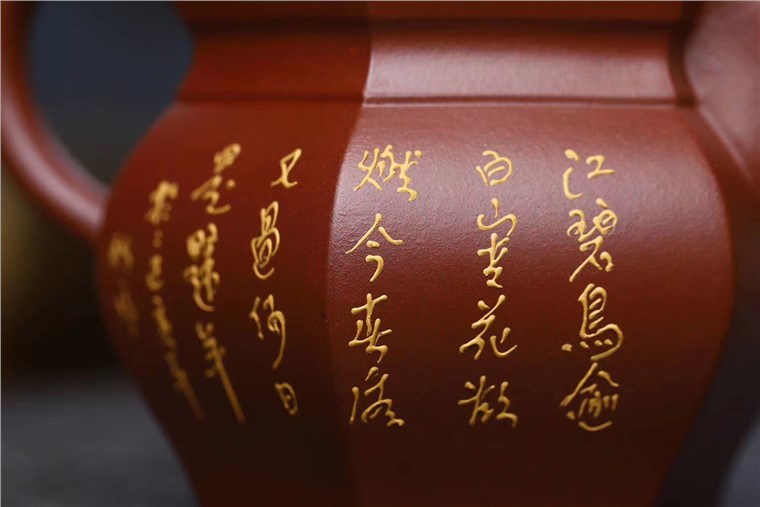 江碧鳥逾
白山青花欲
燃今春看
又過何日
是歸年